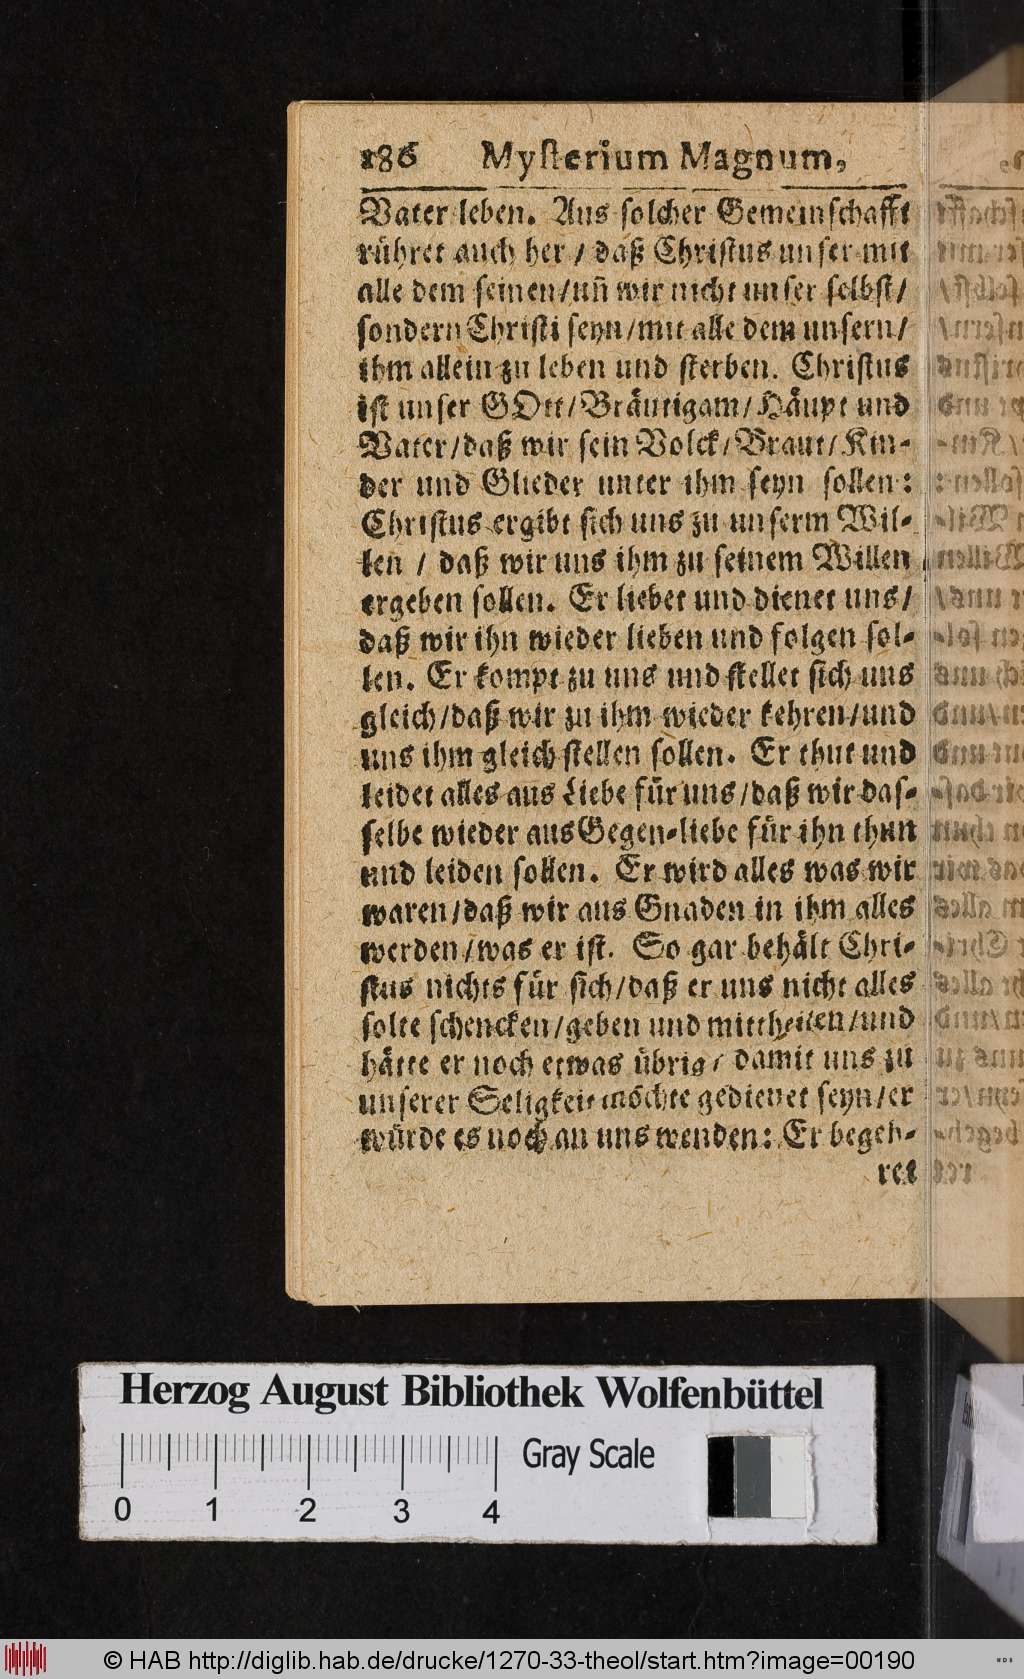 186 Mysterium Magnum,
Vater leben. Aus solcher Gemeinschafft
rühret auch her / daß Christus unser mit
alle dem seinen/uñ wir nicht unser selbst/
sondern Christi seyn/mit alle dem unsern/
ihm allein zu leben und sterben. Christus
ist unser GOtt/Bräutigam/Häupt und
Vater/daß wir sein Volck/Braut/Kin-
der und Glieder unter ihm seyn sollen:
Christus ergibt sich uns zu unserm Wil-
len / daß wir uns ihm zu seinem Willen
ergeben sollen. Er liebet und dienet uns/
daß wir ihn wieder lieben und folgen sol-
len. Er kompt zu uns und stellet sich uns
gleich/daß wir zu ihm wieder kehren/und
uns ihm gleich stellen sollen. Er thut und
leidet alles aus Liebe für uns/daß wir das-
selbe wieder aus Gegen-liebe für ihn thun
und leiden sollen. Er wird alles was wir
waren/daß wir aus Gnaden in ihm alles
werden/was er ist. So gar behält Chri-
stus nichts für sich/daß er uns nicht alles
solte schencken/geben und mittheilen/und
hätte er noch etwas übrig/ damit uns zu
unserer Seligkeit möchte gedienet seyn/er
würde es noch an uns wenden: Er begeh-
ret
Herzog August Bibliothek Wolfenbüttel
Gray Scale
0 1 2 3 4
© HAB http://diglib.hab.de/drucke/1270-33-theol/start.htm?image=00190